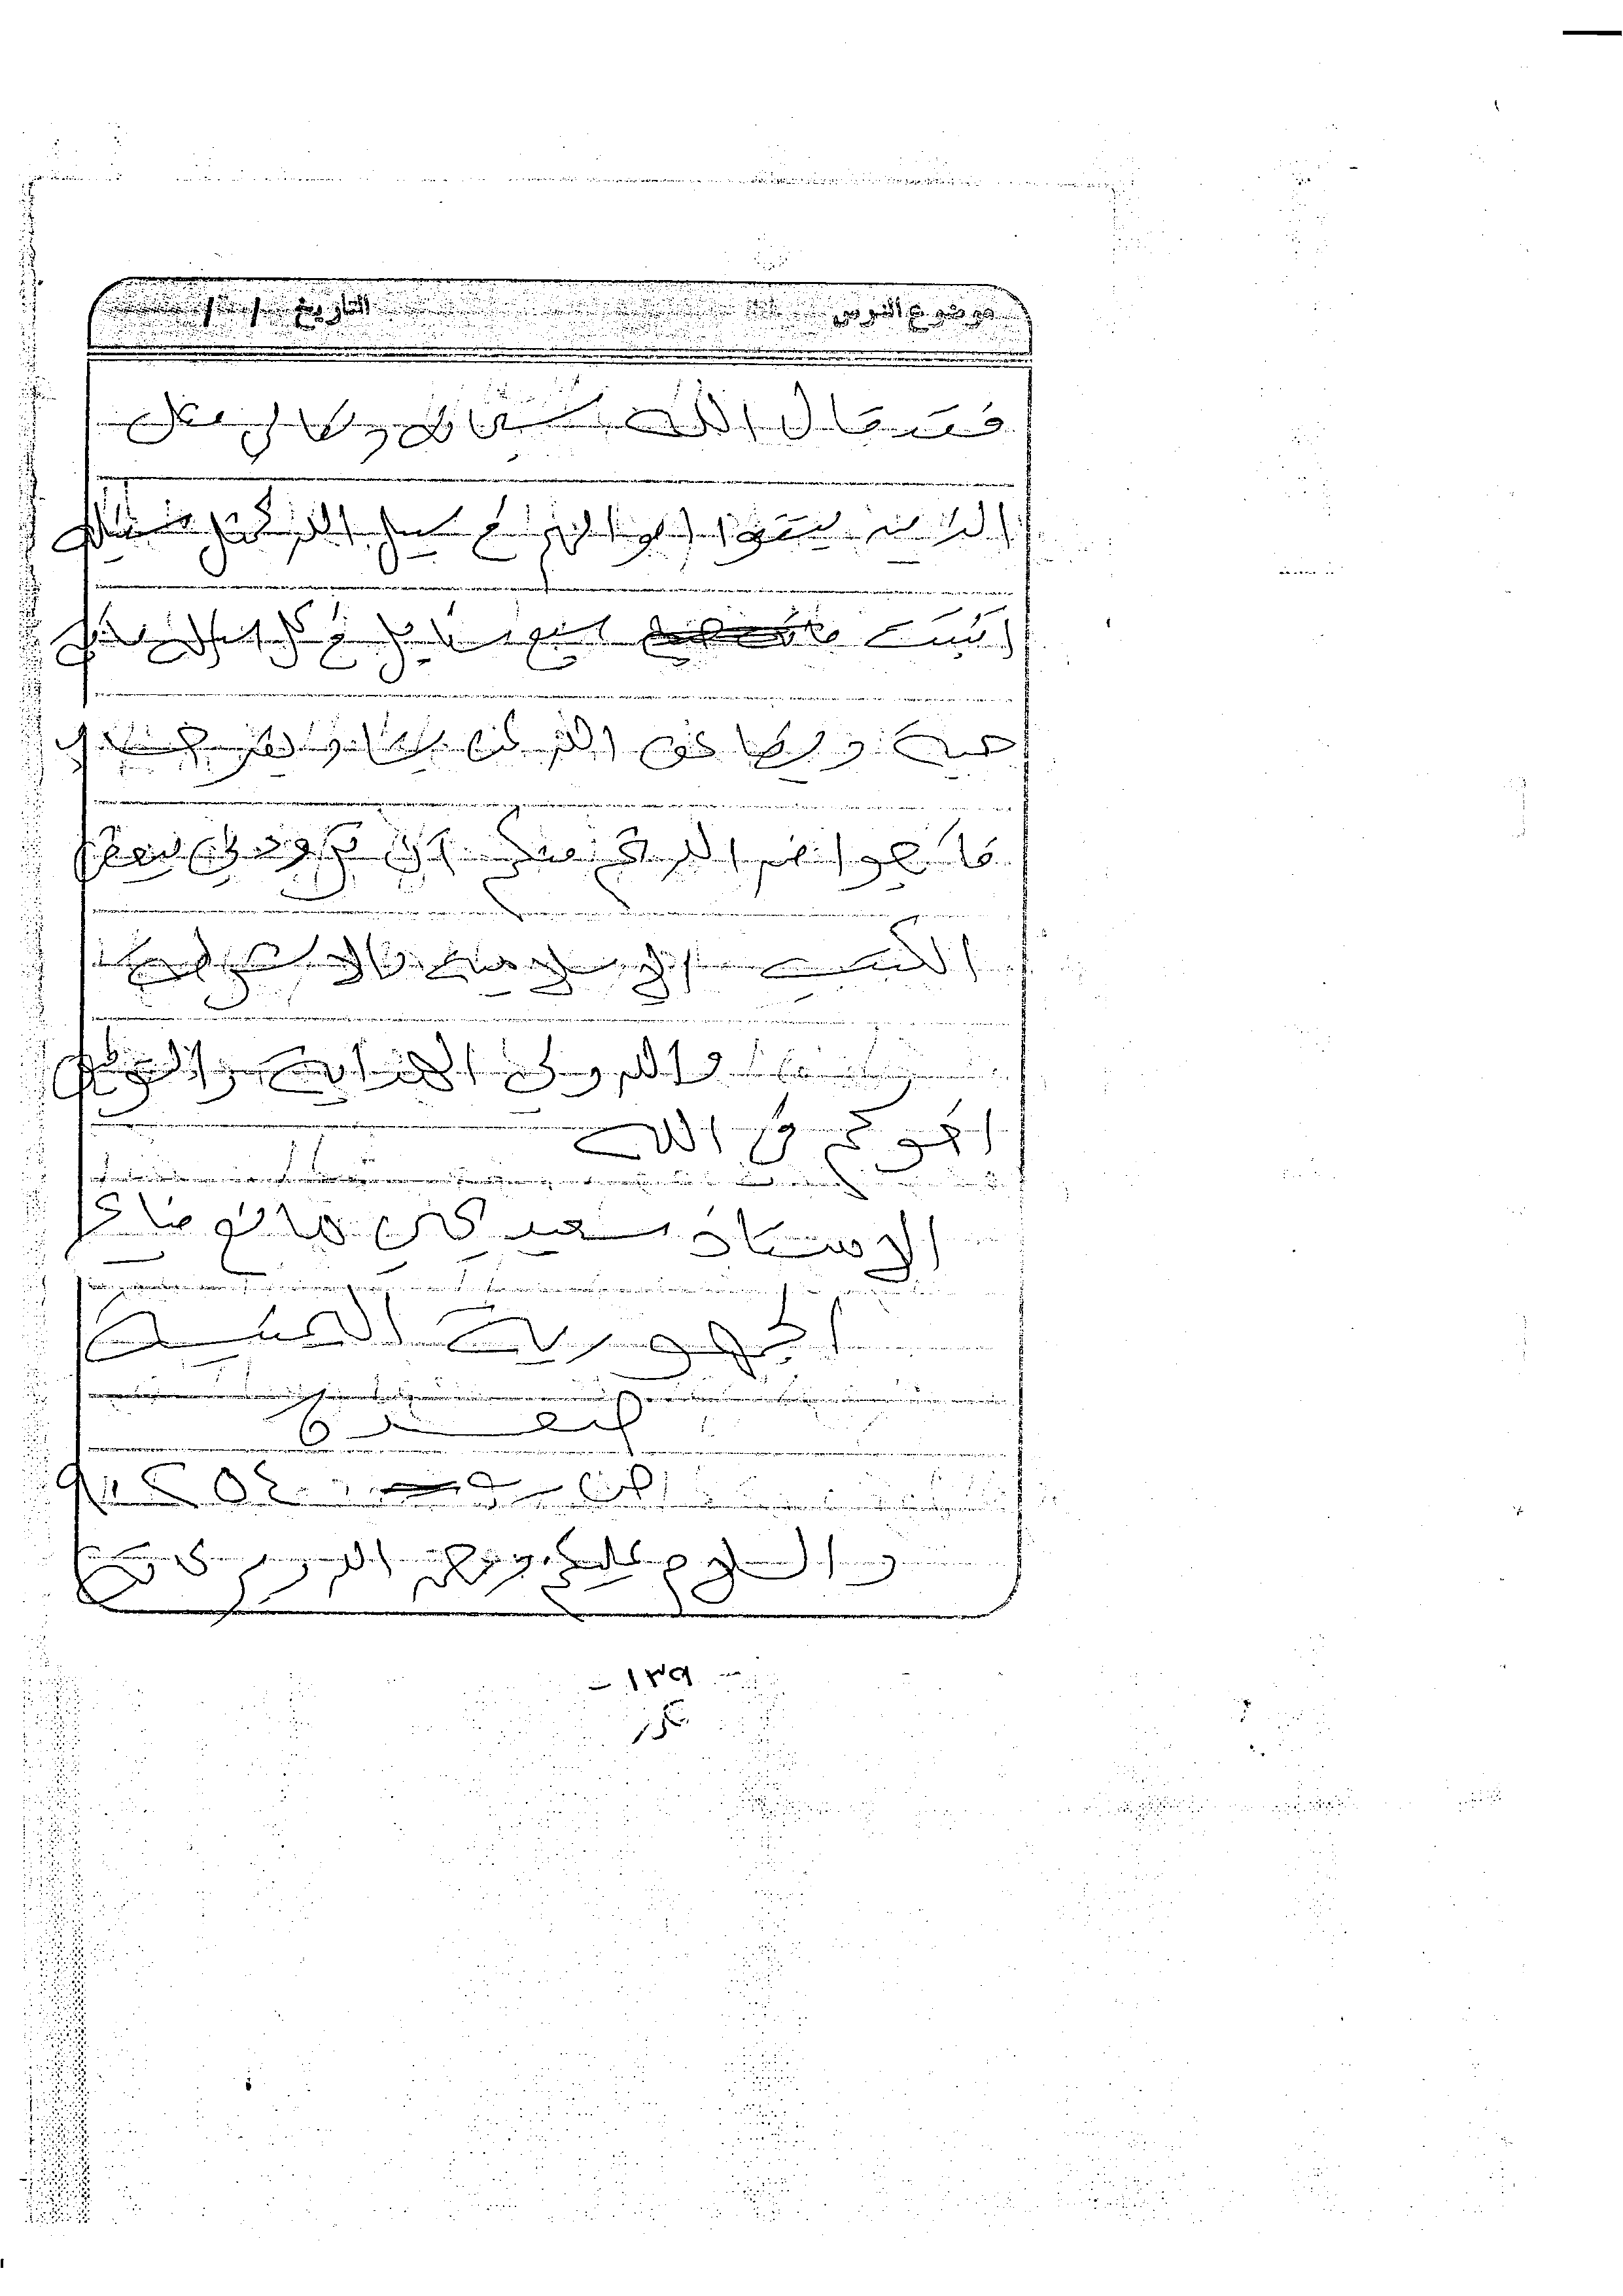 موضوع الدرس التاريخ / /
فقد قال الله سبحانه وتعالى مثل
الذين ينفقوا اموالهم في سبيل الله كمثل حبة
انبتت سبع سنابل في كل سنبلة مائة
حبة ويضاعف الله لمن يشاء
فارجوا من الله ثم منكم ان تزودوني ببعض
الكتب الاسلامية والاشرطة
والله ولي الهداية والتوفيق
اخوكم في الله
الاستاذ سعيد مانع
الجمهورية اليمنية
صعدة
ص
والسلام عليكم ورحمة الله وبركاته
- ١٣٩ -